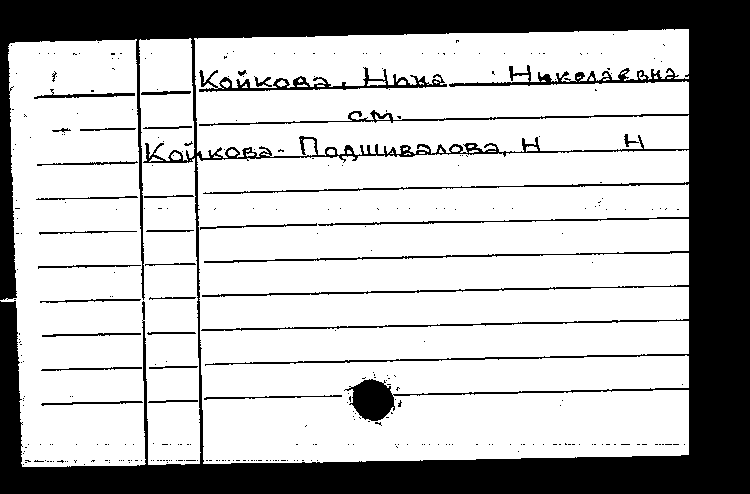 Койкова, Нина Николаевна.
см.
Койкова-Подшивалова, Н Н